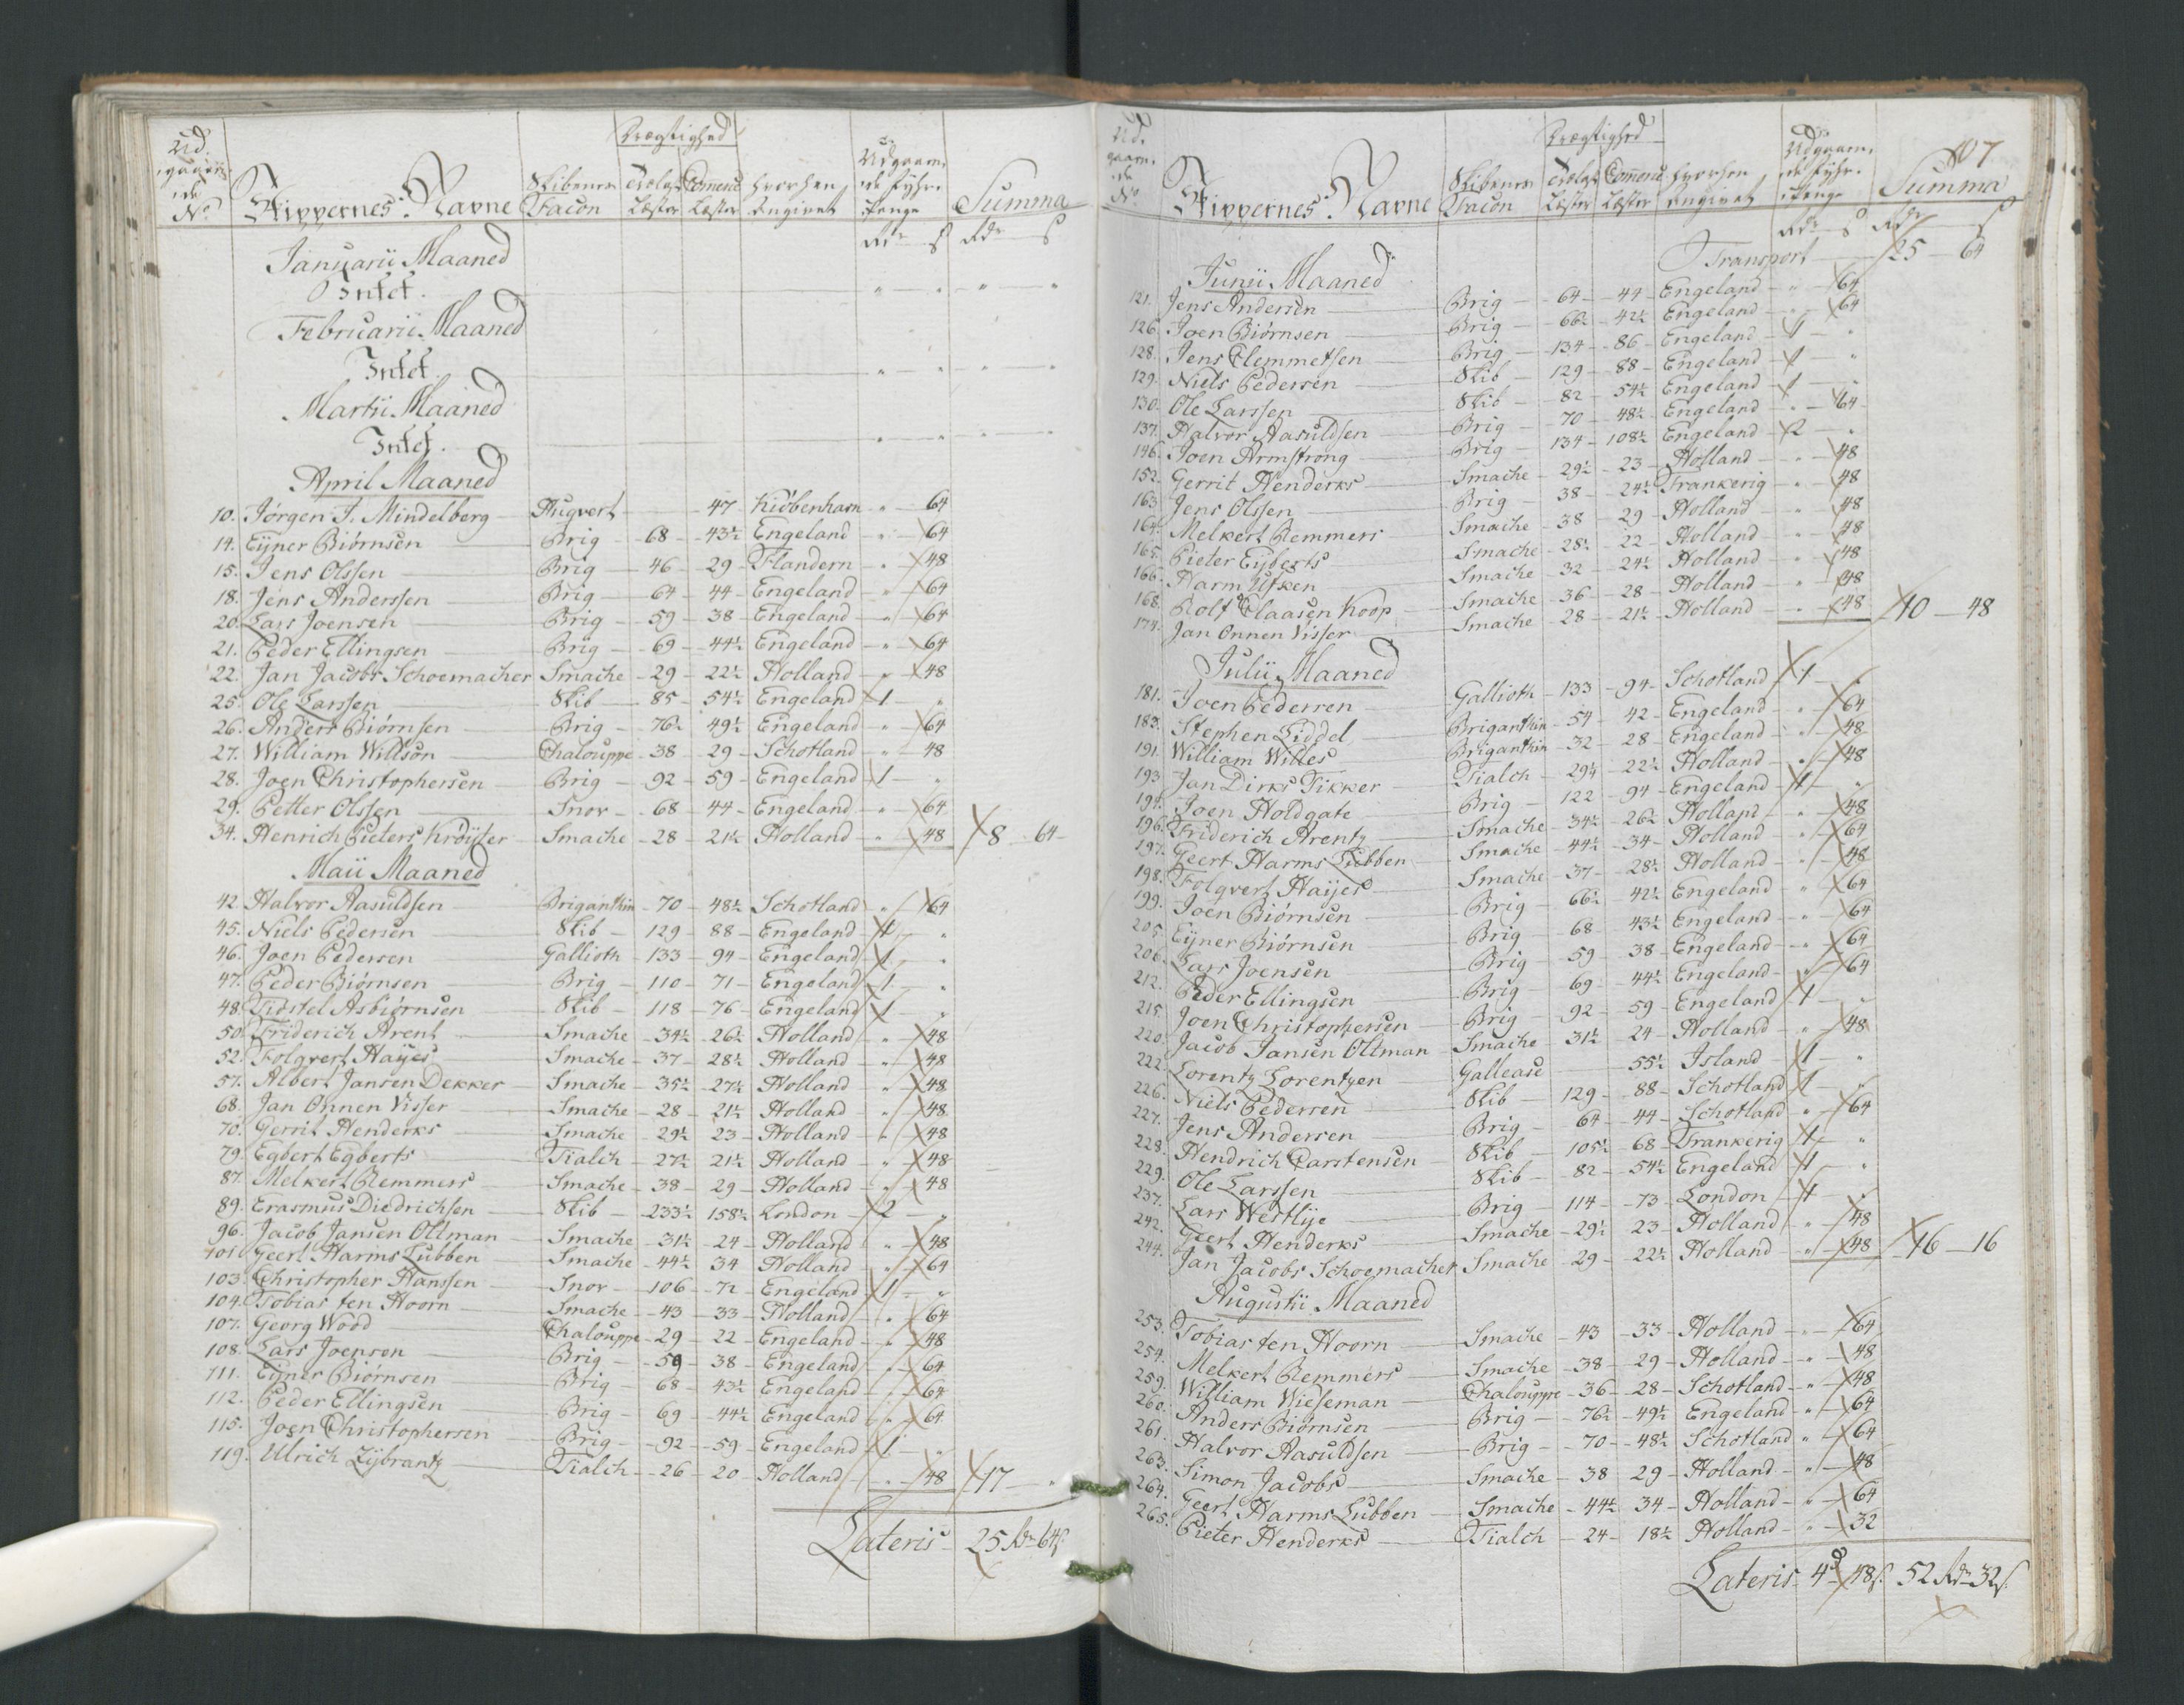 Ud,
gaaen,
de
No
Skippernes Navne
Skibenes
Facon
Drægtighed
Trælast
Læster
Comerce
Læster
Hvorhen
Angivet
Udgaaen,
de Fyhr,
Penge
Rdr ß
Summa
Rdr ß
Januarii Maaned
Intet.
Februarii Maaned
Intet.
Martii Maaned
Intet.
April Maaned
10. Jørgen J. Mindelberg Huqvert 47 Kiöbenhavn " 64
14. Ejner Biørnsen Brig 68 43½ Engeland " 64
15. Jens Olssen Brig 46 29 Flandern " 48
18. Jens Anderssen Brig 64 44 Engeland " 64
20. Lars Joensen Brig 59 38 Engeland " 64
21. Peder Ellingsen Brig 69 44½ Engeland " 64
22. Jan Jacobs Schoemacher Smache 29 22½ Holland " 48
25. Ole Larssen Skib 85 54½ Engeland 1 "
26. Anders Biørnsen Brig 76½ 49½ Engeland " 64
27. William Willson Chalouppe 38 29 Schotland " 48
28. Joen Christophersen Brig 92 59 Engeland 1 "
29. Petter Olssen Snov 68 44 Engeland " 64
34. Henrich Pieters Kröyter Smache 28 21½ Holland " 48 8 64
Maii Maaned
42 Halvor Aasuldsen Briganthin 70 48½ Schotland " 64
45. Niels Pedersen Skib 129 88 Engeland 1 "
46. Joen Pedersen Gallioth 133 94 Engeland 1 "
47. Peder Biørnsen Brig 110 71 Engeland 1 "
48. Tidstel Asbiørnsen Skib 118 76 Engeland 1 "
50. Friderich Arent Smache 34½ 26½ Holland " 48
52. Folqvert Hayes Smache 37 28½ Holland " 48
57. Albert Jansen Dekker Smache 35½ 27½ Holland " 48
68. Jan Onnen Visser Smache 28 21½ Holland " 48
70. Gerrit Henderks Smache 29½ 23 Holland " 48
79. Egbert Egberts Tialch 27½ 21½ Holland " 48
87. Melkert Remmers Smache 38 29 Holland " 48
89. Erasmus Diedrichsen Skib 233½ 158½ London 2 "
96. Jacob Jansen Oltman Smache 31½ 24 Holland " 48
101. Geert Harms Lubben Smache 44½ 34 Holland " 64
103. Christopher Hanssen Snov 106 72 Engeland 1 "
104. Tobias ten Hoorn Smache 43 33 Holland " 64
107. Georg Wood Chalouppe 29 22 Engeland " 48
108. Lars Joensen Brig 59 38 Engeland " 64
111. Ejner Biørnsen Brig 68 43½ Engeland " 64
112. Peder Ellingsen Brig 69 44½ Engeland " 64
115. Joen Christophersen Brig 92 59 Engeland 1 "
119. Ulrich Zijbrantz Tialch 26 20 Holland " 48 17 "
Lateris 25 Rdr 64 ß
107
Ud,
gaaen,
de
No
Skippernes Navne
Skibenes
Facon
Drægtighed
Trælast
Læster
Comerce
Læster
Hvorhen
Angivet
Udgaaen,
de Fyhr,
Penge
Rdr ß
Summa
Rdr ß
Transport 25 64
Junii Maaned
121. Jens Andersen Brig 64 44 Engeland " 64
126. Joen Biørnsen Brig 66½ 42½ Engeland " 64
128. Jens Clemmetsen Brig 134 86 Engeland 1 "
129. Niels Pedersen Skib 129 88 Engeland 1 "
130. Ole Larssen Skib 82 54½ Engeland 1 "
137. Halvor Aasuldsen Brig 70 48½ Engeland " 64
146. Joen Armstrong Brig 134 108½ Engeland 2 "
152. Gerrit Henderks Smache 29½ 23 Holland " 48
163. Jens Olssen Brig 38 24½ Frankerig " 48
164. Melkert Remmers Smache 38 29 Holland " 48
165. Pieter Eyberts Smache 28½ 22 Holland " 48
166. Harm Utken Smache 32 24½ Holland " 48
168. Rolf Claasen Koop Smache 36 28 Holland " 48
174. Jan Onnen Visser Smache 28 21½ Holland " 48 10 48
Julii Maaned
181. Joen Pedersen Gallioth 133 94 Schotland 1 "
183. Stephen Liddel Briganthin 54 42 Engeland " 64
191. William Willes Briganthin 32 28 Engeland " 48
193. Jan Dirks Fikker Tialch 29½ 22½ Holland " 48
194. Joen Holdgate Brig 122 94 Engeland 1 "
196. Friderich Arentz Smache 34½ 26½ Holland " 48
197. Geert Harms Lubben Smache 44½ 34 Holland " 64
198. Folqvert Hayes Smache 37 28½ Holland " 48
199. Joen Biørnsen Brig 66½ 42½ Engeland " 64
205. Ejner Biørnsen Brig 68 43½ Engeland " 64
206. Lars Joensen Brig 59 38 Engeland " 64
212. Peder Ellingsen Brig 69 44½ Engeland " 64
215. Joen Christophersen Brig 92 59 Engeland 1 "
220. Jacob Jansen Oltman Smache 31½ 24 Holland " 48
222. Lorentz Lorentzen Gallease 55½ Island 1 "
226. Niels Pedersen Skib 129 88 Schotland 1 "
227. Jens Andersen Brig 64 44 Schotland " 64
228. Hendrich Carstensen Skib 105½ 68 Frankerig 1 "
229. Ole Larssen Skib 82 54½ Engeland 1 "
237. Lars Westlye Brig 114 73 London 1 "
242. Geert Henderks Smache 29½ 23 Holland " 48
244. Jan Jacobs Schoemacher Smache 29 22½ Holland " 48 16 16
Augustii Maaned
253. Tobias ten Hoorn Smache 43 33 Holland " 64
254. Melkert Remmers Smache 38 29 Holland " 48
259. William Wieseman Chalouppe 36 28 Schotland " 48
260. Anders Biørnsen Brig 76½ 49½ Engeland " 64
261. Halvor Aasuldsen Brig 70 48½ Schotland " 64
263. Simon Jacobs Smache 38 29 Holland " 48
264. Geert Harms Lubben Smache 44½ 34 Holland " 64
265. Pieter Henderks Tialch 24 18½ Holland " 32
Lateris 4 Rdr 48 ß. 52 Rdr 32 ß.